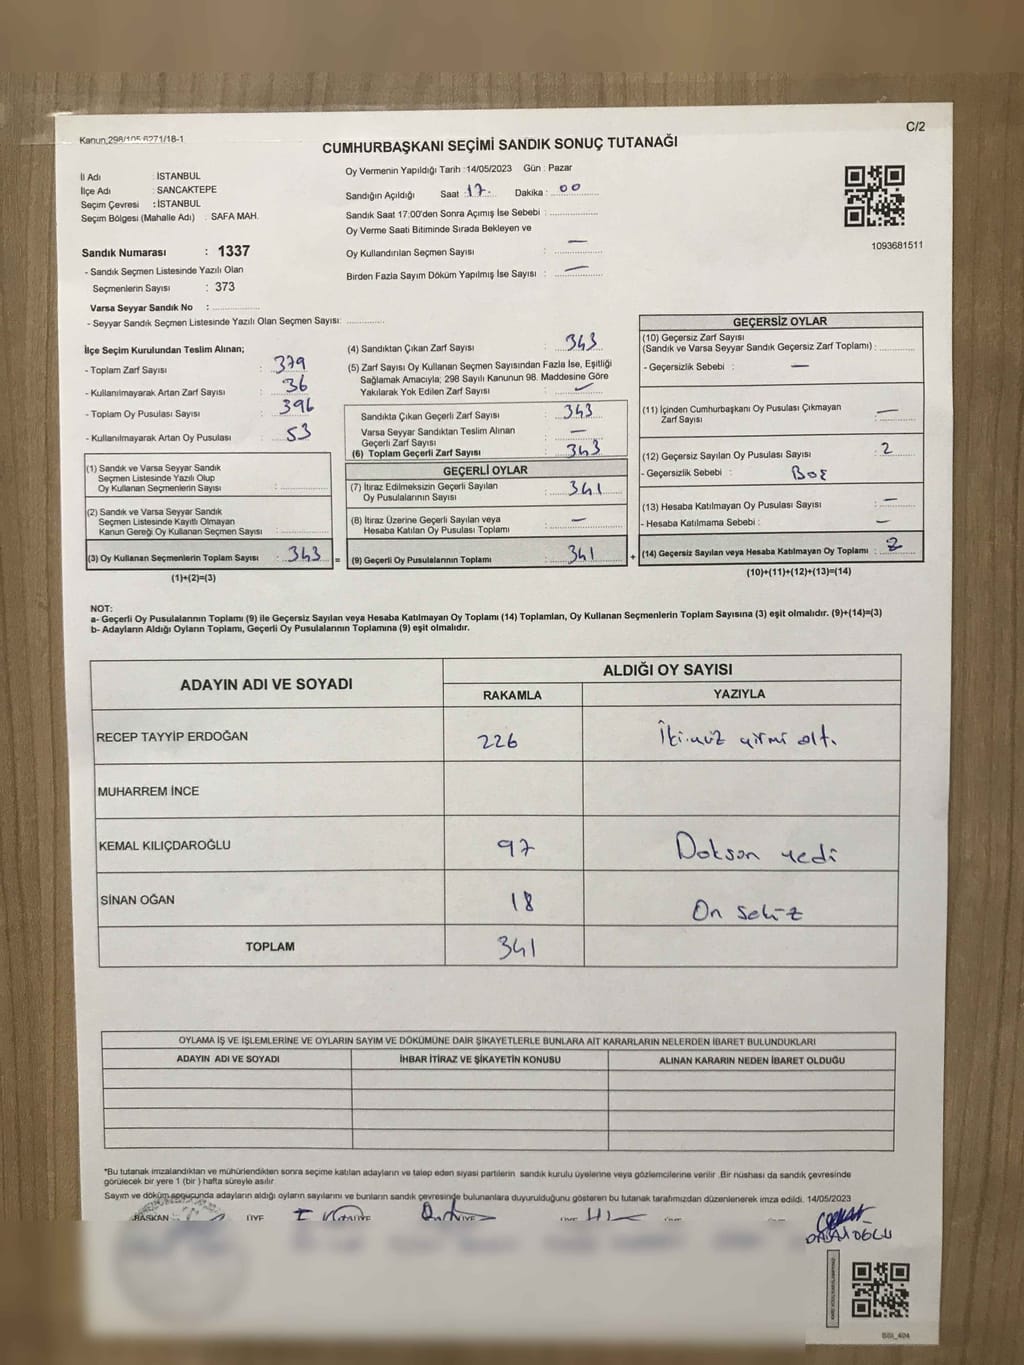 C/2
Kanun,298/105 6271/18-1
CUMHURBAŞKANI SEÇİMİ SANDIK SONUÇ TUTANAĞI
İl Adı : İSTANBUL
İlçe Adı : SANCAKTEPE
Seçim Çevresi : İSTANBUL
Seçim Bölgesi (Mahalle Adı) : SAFA MAH.
Oy Vermenin Yapıldığı Tarih :14/05/2023 Gün : Pazar
Sandığın Açıldığı Saat : 17. Dakika : 00
Sandık Saat 17:00'den Sonra Açımış İse Sebebi :
Oy Verme Saati Bitiminde Sırada Bekleyen ve
Oy Kullandırılan Seçmen Sayısı : —
Birden Fazla Sayım Döküm Yapılmış İse Sayısı : —
1093681511
Sandık Numarası : 1337
- Sandık Seçmen Listesinde Yazılı Olan
Seçmenlerin Sayısı : 373
Varsa Seyyar Sandık No :
- Seyyar Sandık Seçmen Listesinde Yazılı Olan Seçmen Sayısı:
İlçe Seçim Kurulundan Teslim Alınan;
- Toplam Zarf Sayısı : 379
- Kullanılmayarak Artan Zarf Sayısı : 36
- Toplam Oy Pusulası Sayısı : 396
- Kullanılmayarak Artan Oy Pusulası : 53
(1) Sandık ve Varsa Seyyar Sandık
Seçmen Listesinde Yazılı Olup
Oy Kullanan Seçmenlerin Sayısı :
(2) Sandık ve Varsa Seyyar Sandık
Seçmen Listesinde Kayıtlı Olmayan
Kanun Gereği Oy Kullanan Seçmen Sayısı :
(3) Oy Kullanan Seçmenlerin Toplam Sayısı : 343 =
(1)+(2)=(3)
(4) Sandıktan Çıkan Zarf Sayısı : 343
(5) Zarf Sayısı Oy Kullanan Seçmen Sayısından Fazla İse, Eşitliği
Sağlamak Amacıyla; 298 Sayılı Kanunun 98. Maddesine Göre
Yakılarak Yok Edilen Zarf Sayısı : —
Sandıkta Çıkan Geçerli Zarf Sayısı : 343
Varsa Seyyar Sandıktan Teslim Alınan
Geçerli Zarf Sayısı : —
(6) Toplam Geçerli Zarf Sayısı : 343
GEÇERLİ OYLAR
(7) İtiraz Edilmeksizin Geçerli Sayılan
Oy Pusulalarının Sayısı : 341
(8) İtiraz Üzerine Geçerli Sayılan veya
Hesaba Katılan Oy Pusulası Toplamı : —
(9) Geçerli Oy Pusulalarının Toplamı : 341 +
GEÇERSİZ OYLAR
(10) Geçersiz Zarf Sayısı
(Sandık ve Varsa Seyyar Sandık Geçersiz Zarf Toplamı) :
- Geçersizlik Sebebi : —
(11) İçinden Cumhurbaşkanı Oy Pusulası Çıkmayan
Zarf Sayısı : —
(12) Geçersiz Sayılan Oy Pusulası Sayısı : 2
- Geçersizlik Sebebi : Boş
(13) Hesaba Katılmayan Oy Pusulası Sayısı : —
- Hesaba Katılmama Sebebi : —
(14) Geçersiz Sayılan veya Hesaba Katılmayan Oy Toplamı : 2
(10)+(11)+(12)+(13)=(14)
NOT:
a- Geçerli Oy Pusulalarının Toplamı (9) ile Geçersiz Sayılan veya Hesaba Katılmayan Oy Toplamı (14) Toplamları, Oy Kullanan Seçmenlerin Toplam Sayısına (3) eşit olmalıdır. (9)+(14)=(3)
b- Adayların Aldığı Oyların Toplamı, Geçerli Oy Pusulalarının Toplamına (9) eşit olmalıdır.
ADAYIN ADI VE SOYADI ALDIĞI OY SAYISI
RAKAMLA YAZIYLA
RECEP TAYYİP ERDOĞAN 226 İkiyüz yirmi altı
MUHARREM İNCE
KEMAL KILIÇDAROĞLU 97 Doksan yedi
SİNAN OĞAN 18 On sekiz
TOPLAM 341
OYLAMA İŞ VE İŞLEMLERİNE VE OYLARIN SAYIM VE DÖKÜMÜNE DAİR ŞİKAYETLERLE BUNLARA AİT KARARLARIN NELERDEN İBARET BULUNDUKLARI
ADAYIN ADI VE SOYADI İHBAR İTİRAZ VE ŞİKAYETİN KONUSU ALINAN KARARIN NEDEN İBARET OLDUĞU
*Bu tutanak imzalandıktan ve mühürlendikten sonra seçime katılan adayların ve talep eden siyasi partilerin sandık kurulu üyelerine veya gözlemcilerine verilir .Bir nüshası da sandık çevresinde
görülecek bir yere 1 (bir ) hafta süreyle asılır.
Sayım ve döküm sonucunda adayların aldığı oyların sayılarını ve bunların sandık çevresinde bulunanlara duyurulduğunu gösteren bu tutanak tarafımızdan düzenlenerek imza edildi. 14/05/2023
BAŞKAN ÜYE ÜYE